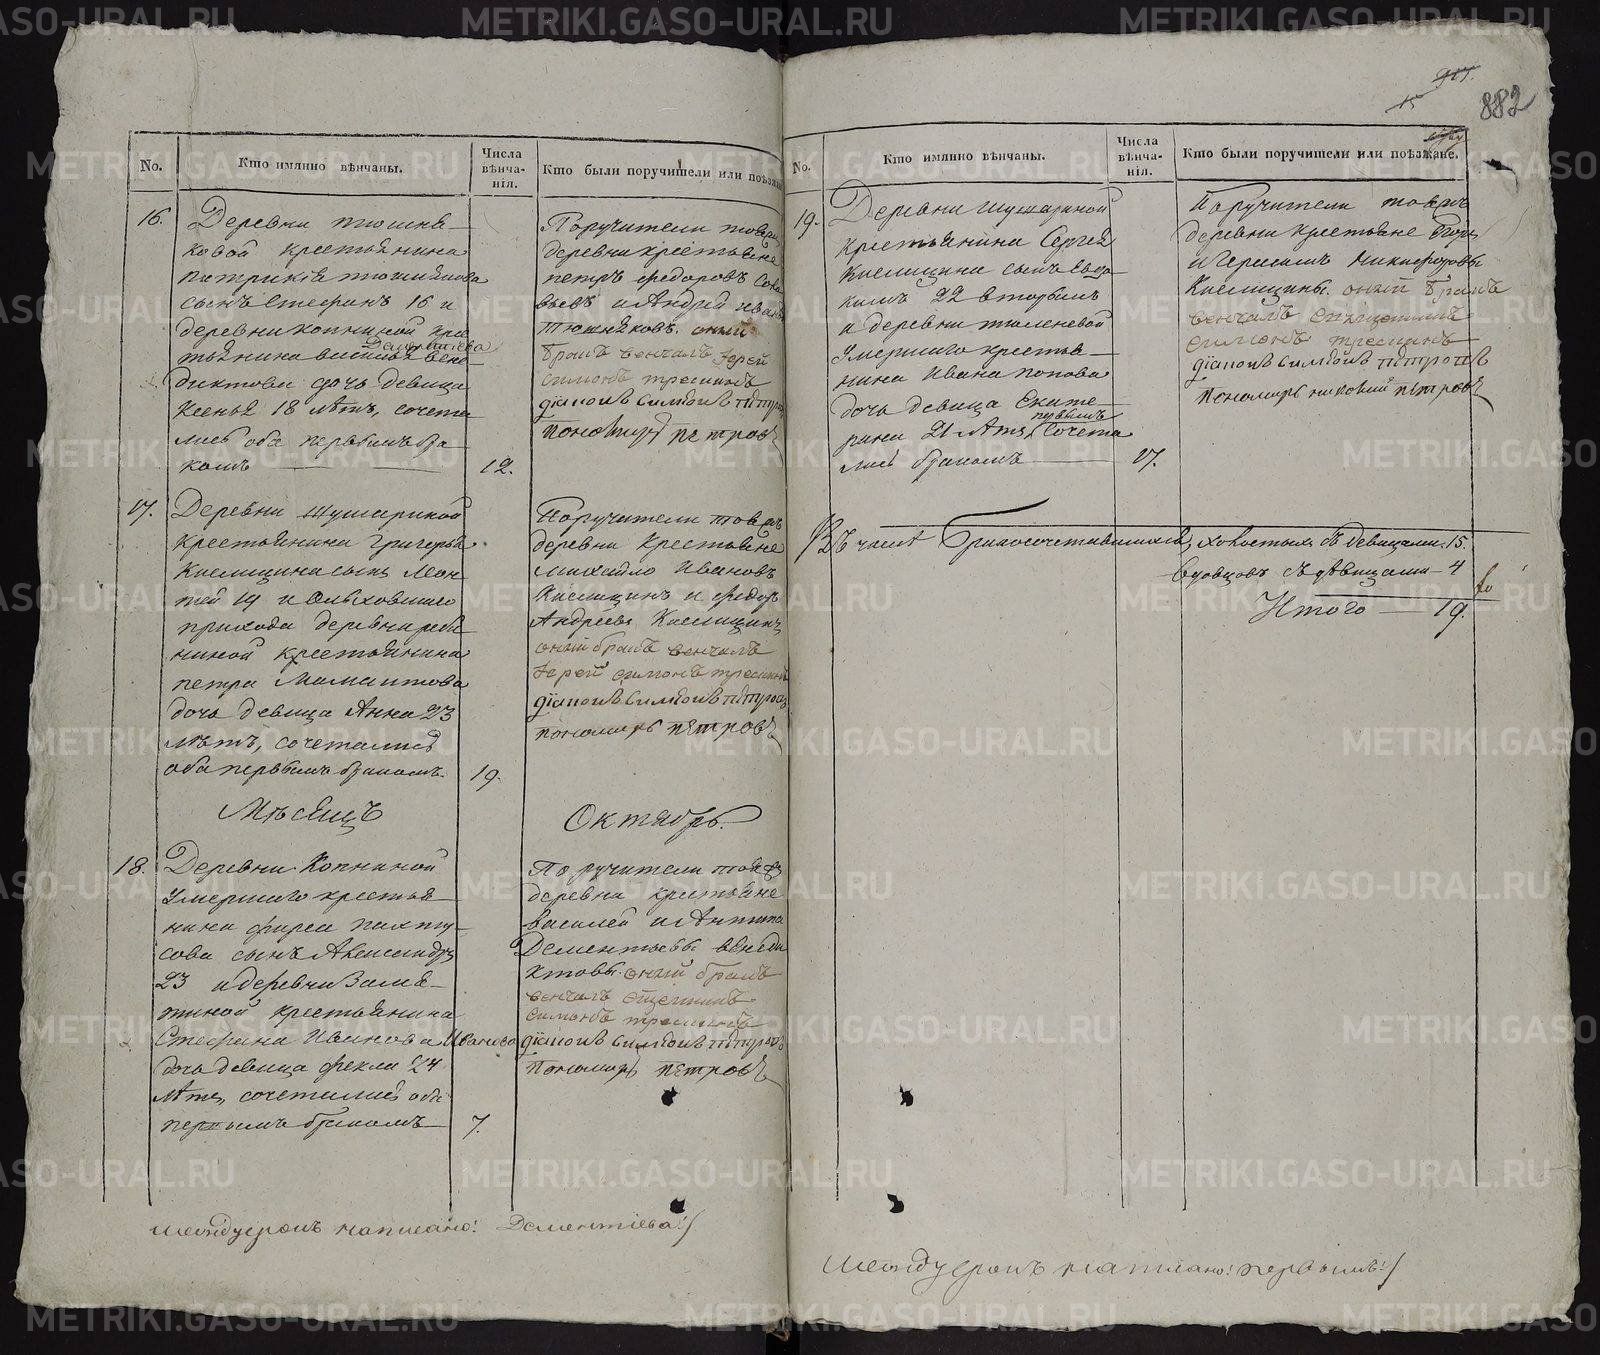 917.
15
882
No.
Кто имянно вѣнчаны.
Числа
вѣнча-
нія.
Кто были поручители или поѣзжане.
16.
Деревни тюшня-
ковой крестьянина
патрикѣя тюшнякова
сынъ Стефанъ 16 и
деревни копниной крес
Дементіева
тьянина василья вене-
диктова дочь девица
Ксенья 18 лѣтъ, сочета
лись оба первымъ бра
комъ
12.
Поручители тояжъ
деревни крестьяне
петръ федоровъ
и Андрей
тюшняковъ. оный
бракъ венчалъ Іерей
симонъ
діаконъ Симеонъ
пономарь петровъ
17.
Деревни Шушариной
крестьянина Григорья
Кислицина сынъ
19 и Ольховскаго
прихода деревни
крестьянина
петра Мамонтова
дочь девица Анна 23
лѣтъ, сочетались
оба первымъ бракомъ.
19.
Поручители тояжъ
деревни Крестьяне
михайло Ивановъ
Кислицинъ и федоръ
Андреевъ Кислицинъ
оный бракъ венчалъ
Іерей симонъ
діаконъ Симеонъ
пономарь петровъ
Мѣсяцъ
Октябрь.
18.
Деревни Копниной
Умершаго крестья-
нина фирса пахту-
сова сынъ Александръ
23 и деревни Замя-
тиной крестьянина
Стефана Иванова Иванова
дочь девица фекла 24
лѣтъ, сочетались оба
первымъ бракомъ
7.
Поручители тояжъ
деревни крестьяне
василей и Антипа
Дементьевы венеди
ктовы. оный бракъ
венчалъ священникъ
симонъ
діаконъ Симеонъ
пономарь петровъ
написано! Дементіева!
No.
Кто имянно вѣнчаны.
Числа
вѣнча-
нія.
Кто были поручители или поѣзжане.
19.
Деревни Шушариной
крестьянина Сергея
Кислицина сынъ Евдо-
кимъ 22 вторымъ
и деревни тюленевой
Умершаго крестья-
нина Ивана попова
дочь девица Екате-
первымъ
рина 21 лѣтъ, Сочета
лись бракомъ
17.
Поручители тояжъ
деревни крестьяне
и Герасимъ Никифоровы
Кислицины. оный бракъ
венчалъ священникъ
симонъ
діаконъ Симеонъ
пономарь николай петровъ
Въ числѣ бракосочетавшихся, холостыхъ съ девицами. 15.
вдовцовъ съ дѣвицами 4
Итого 19.
написано! первымъ!
METRIKI.GASO-URAL.RU